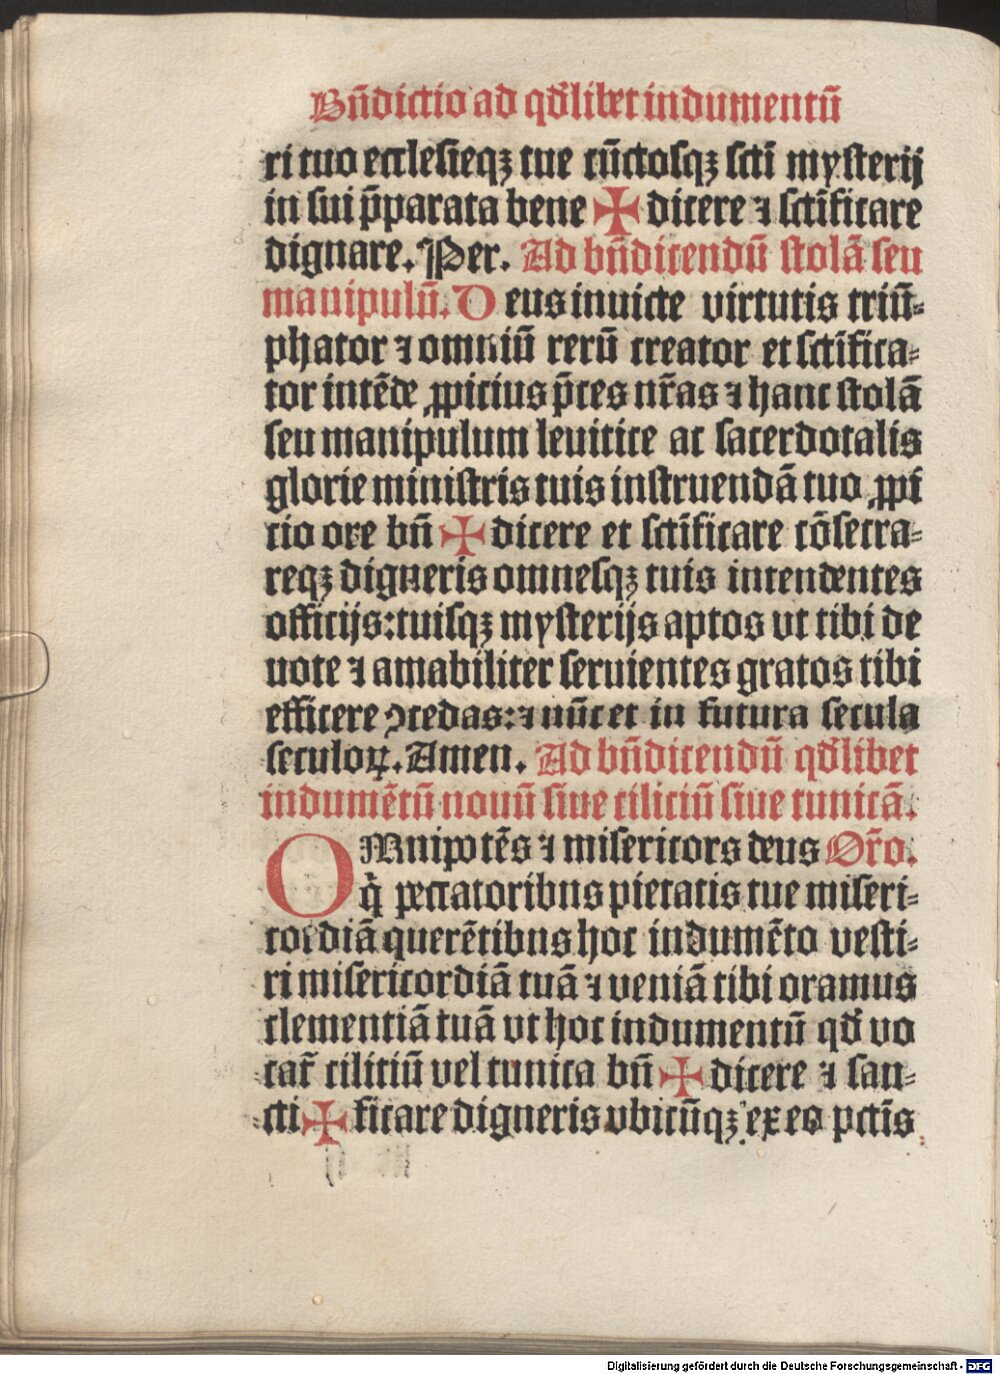 Bn̄dictio ad qđlibet indumentū
ri tuo ecclesieqꝫ tue cūctosqꝫ sctī mysterij
in sui p̄parata bene ✠ dicere ⁊ sctīficare
dignare. Per. Ad bn̄dicendū stolā seu
manipulū. Deus inuicte virtutis triū⸗
phator ⁊ omniū rerū creator et sctīfica⸗
tor intēde ꝓpicius p̄ces nr̄as ⁊ hanc stolā
seu manipulum leuitice ac sacerdotalis
glorie ministris tuis instruendā tuo ꝓpi
cio ore bn̄ ✠ dicere et sctīficare cōsecra⸗
reqꝫ digneris omnesqꝫ tuis intendentes
officijs: tuisqꝫ mysterijs aptos vt tibi de
uote ⁊ amabiliter seruientes gratos tibi
efficere ꝯcedas: ⁊ nūc et in futura secula
seculoꝝ. Amen. Ad bn̄dicendū qđlibet
indumētū nouū siue ciliciū siue tunicā.
OMnipotēs ⁊ misericors deus Or̄o.
q̇ peccatoribus pietatis tue miseri⸗
cordiā querētibus hoc indumēto vesti⸗
ri misericordiā tuā ⁊ veniā tibi oramus
clementiā tuā vt hoc indumentū qđ vo
cat᷑ ciliciū vel tunica bn̄ ✠ dicere ⁊ san⸗
cti ✠ ficare digneris vbicūqꝫ ex eo pctīs
Digitalisierung gefördert durch die Deutsche Forschungsgemeinschaft - DFG